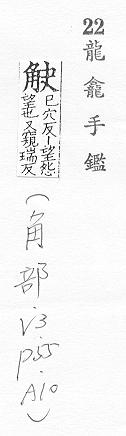 22 龍龕手鑑
觖 巳穴反卜望怨
望也又規瑞反
(角部.v3.p55.A10)